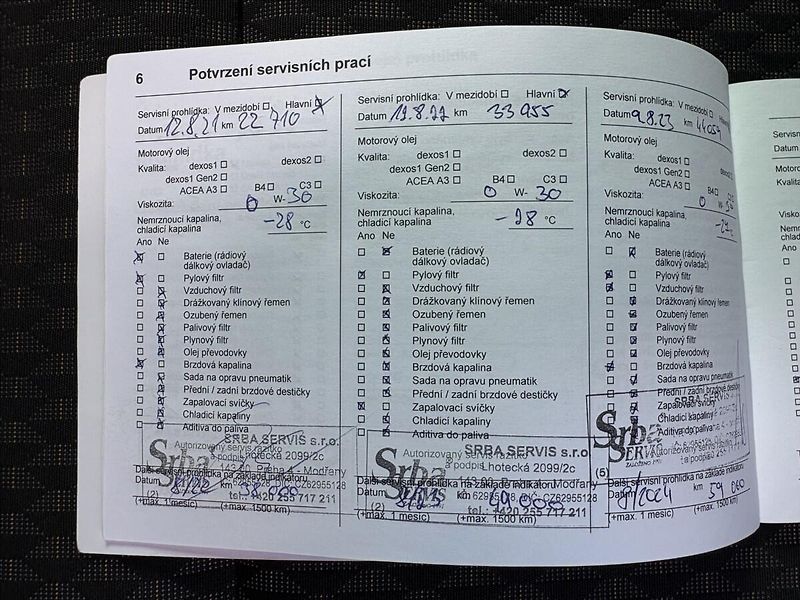 6 Potvrzení servisních prací
Servisní prohlídka: V mezidobí Hlavní
Datum 12.8.21 km 22 710
Motorový olej
Kvalita: dexos1 dexos2
dexos1 Gen2
ACEA A3 B4 C3
Viskozita: 0 W- 30
Nemrznoucí kapalina,
chladicí kapalina -28 °C
Ano Ne
Baterie (rádiový
dálkový ovladač)
Pylový filtr
Vzduchový filtr
Drážkovaný klínový řemen
Ozubený řemen
Palivový filtr
Plynový filtr
Olej převodovky
Brzdová kapalina
Sada na opravu pneumatik
Přední / zadní brzdové destičky
Zapalovací svíčky
Chladicí kapaliny
Aditiva do paliva
SRBA SERVIS s.r.o.
Autorizovaný servis
a podpis Lhotecká 2099/2c
143 00 Praha 4 - Modřany
Další servisní prohlídka na základě indikátoru
Datum km
tel.: +420 255 717 211
(2)
(+max. 1 měsíc) (+max. 1500 km)
Servisní prohlídka: V mezidobí Hlavní
Datum 19.8.22 km 33 955
Motorový olej
Kvalita: dexos1 dexos2
dexos1 Gen2
ACEA A3 B4 C3
Viskozita: 0 W- 30
Nemrznoucí kapalina,
chladicí kapalina -28 °C
Ano Ne
Baterie (rádiový
dálkový ovladač)
Pylový filtr
Vzduchový filtr
Drážkovaný klínový řemen
Ozubený řemen
Palivový filtr
Plynový filtr
Olej převodovky
Brzdová kapalina
Sada na opravu pneumatik
Přední / zadní brzdové destičky
Zapalovací svíčky
Chladicí kapaliny
Aditiva do paliva
SRBA SERVIS s.r.o.
Autorizovaný servis
a podpis Lhotecká 2099/2c
Modřany
Další servisní prohlídka na základě indikátoru
Datum km
CZ62955128
(2) tel.: +420 255 717 211
(+max. 1 měsíc) (+max. 1500 km)
Servisní prohlídka: V mezidobí
Datum 9.8.23 km
Motorový olej
Kvalita: dexos1 dexos2
dexos1 Gen2
ACEA A3 B4 C3
Viskozita: 0 W-
Nemrznoucí kapalina,
chladicí kapalina °C
Ano Ne
Baterie (rádiový
dálkový ovladač)
Pylový filtr
Vzduchový filtr
Drážkovaný klínový řemen
Ozubený řemen
Palivový filtr
Plynový filtr
Olej převodovky
Brzdová kapalina
Sada na opravu pneumatik
Přední / zadní brzdové destičky
Zapalovací svíčky
Chladicí kapaliny
Aditiva do paliva
Srba
SERVIS
(5)
Další servisní prohlídka na základě indikátoru
Datum 8/2024 km 59 000
(+max. 1 měsíc) (+max. 1500 km)